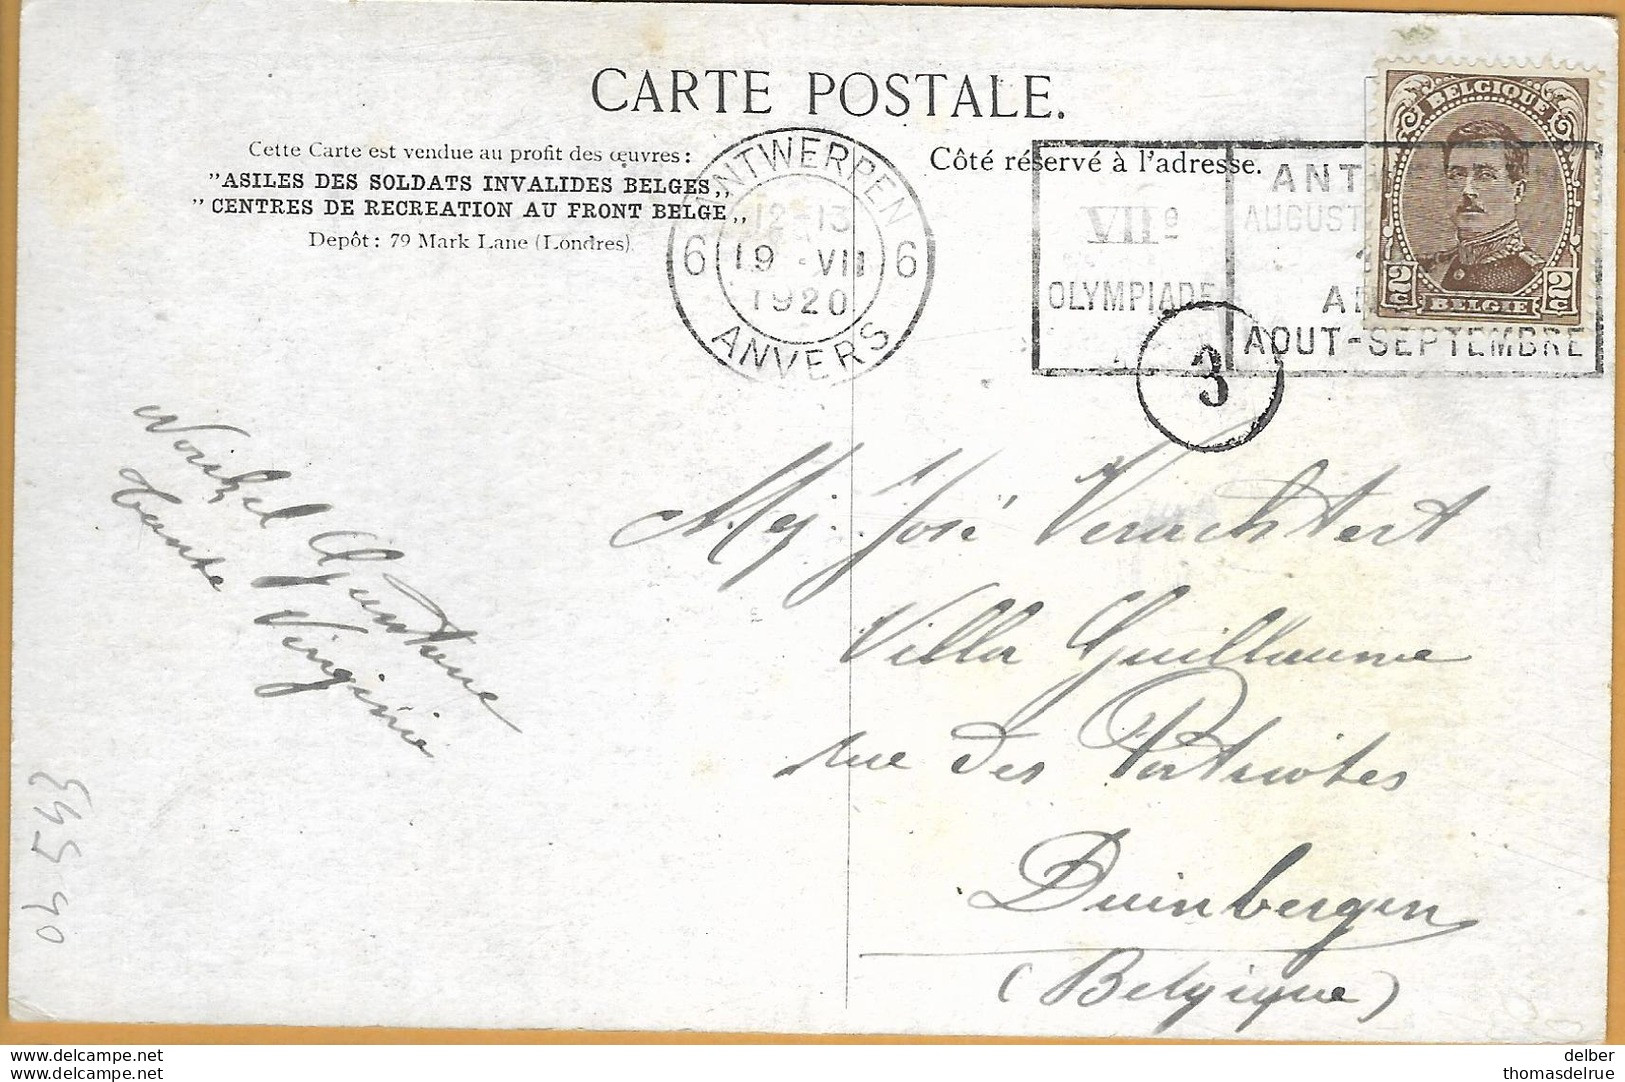 CARTE POSTALE.
Cette Carte est vendue au profit des œuvres:
"ASILES DES SOLDATS INVALIDES BELGES„
"CENTRES DE RECREATION AU FRONT BELGE„
Depôt: 79 Mark Lane (Londres)
Côté réservé à l'adresse.
ANTWERPEN
12-13
6 19 VII 6
1920
ANVERS
VIIe
OLYMPIADE
ANT
AUGUST
AOUT-SEPTEMBRE
BELGIQUE
2c 2c
BELGIË
3
Tante Virginie
Mej. José Verachtert
Villa Guillaume
rue des Patriotes
Duinbergen
(Belgique)
delber
www.delcampe.net
thomasdelrue
www.delcampe.net